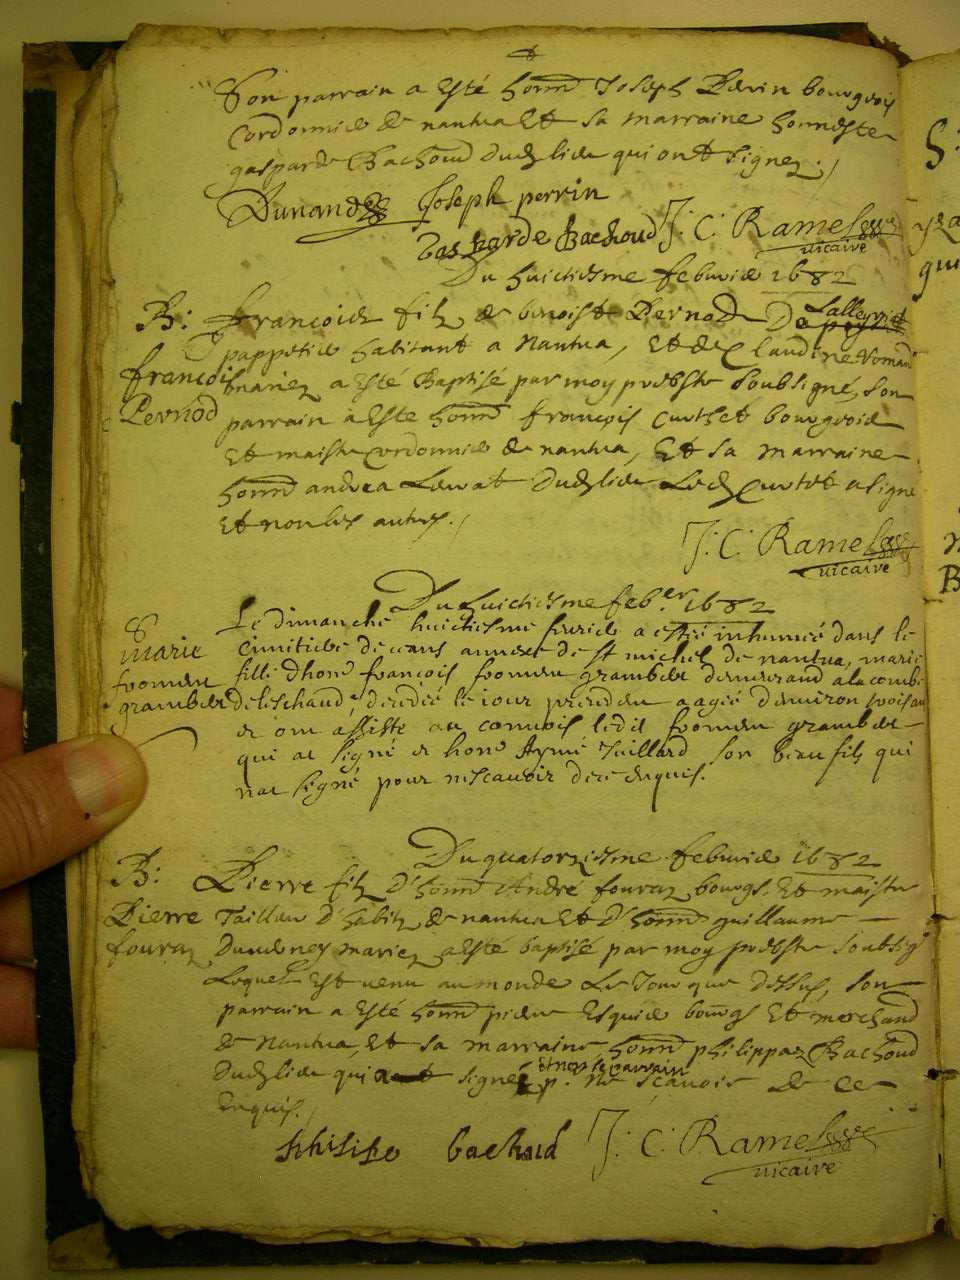 Son parrain a esté honn Joseph Perrin bourgois
Cordonnier de nantua Et sa marraine honneste
gasparde Bachoud dud lieu qui ont signez
Dunand Joseph perrin
Gasparde Bachoud J. C. Ramel
vicaire
Du huictiesme febvrier 1682
B: François filz de benoist Pernod De Lalleyriat
pappetier habitant a Nantua, Et de Claudine
François mariez a esté Baptisé par moy prebstre soubsigné, son
Pernod parrain à esté honn françois Curthet bourgois
Et maistre cordonnier de nantua, Et sa marraine
honn andrea dud lieu Led Curtet a signe
Et non les autres.
J. C. Ramel
vicaire
Du huictiesme feb.er 1682
Le dimanche huictiesme feuvrier a esté inhumée dans le
marie cimitiere de ceans annexe de st michel de nantua, marie
fromen fille d'hone françois fromen grambert demeurand a la combe
grambert decedée le jour precedent aagée d'environ trois ans
et ont assisté au convois ledit fromen grambert
qui at signé et hone Aymé Juillard son beau fils qui
n'at signé pour ne scavoir de ce enquis.
Du quatorziesme febvrier 1682
B: Pierre filz d'honn André fouraz bourgs. Et maistre
Pierre Tailleur d'habitz de nantua Et d' honn guillauma
fouraz mariez a esté baptisé par moy prebstre soubsigé
Lequel Est venu au monde Le Jour que dessus, son
parrain a esté honn pierre Esquier bourgs Et marchand
de Nantua, Et sa marraine honn philippaz Bachoud
et non le parrain
dud lieu qui a signé p. ne sçavoir de ce
Enquis.
philipe bachoud J. C. Ramel
vicaire